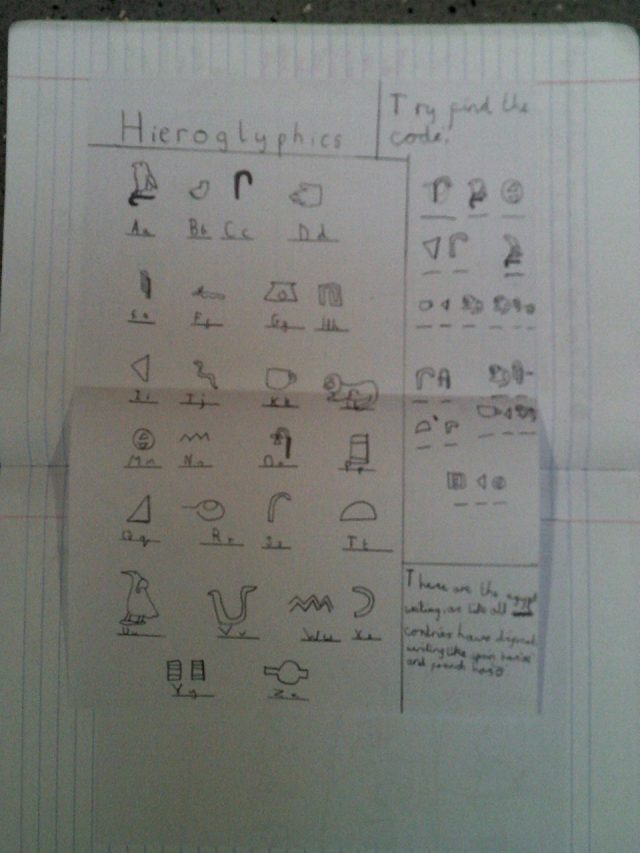 Hieroglyphics
Try find the
code.
Aa Bb Cc Dd
Ee Ff Gg Hh
Ii Jj Kk
Mm Nn Oo Pp
Qq Rr Ss Tt
Uu Vv Ww Xx
Yy Zz
These are the egypt
writing, as like all
contries have
writing like
and